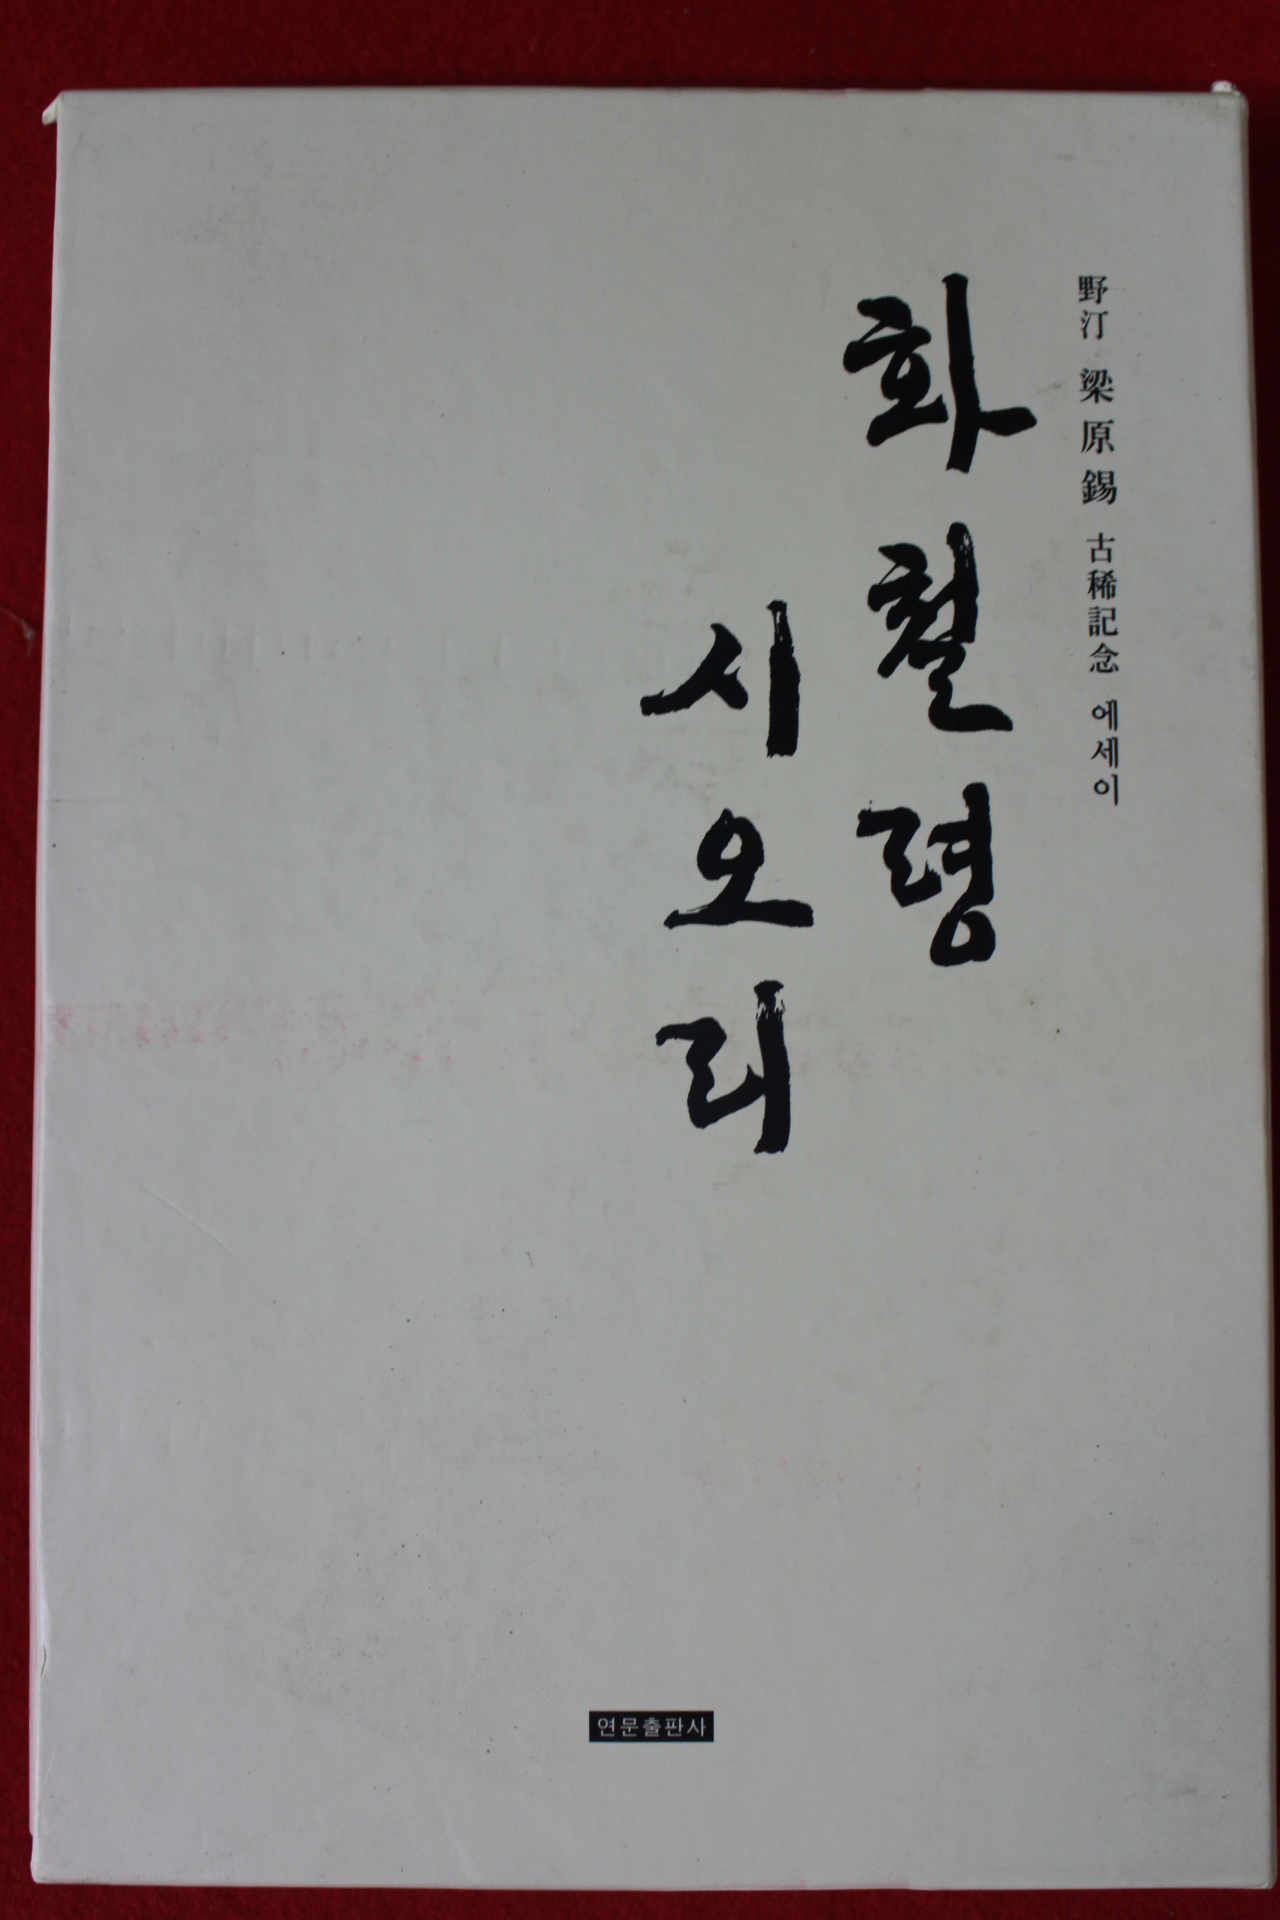 野汀 梁原錫 古稀記念 에세이
화철령
시오리
연문출판사